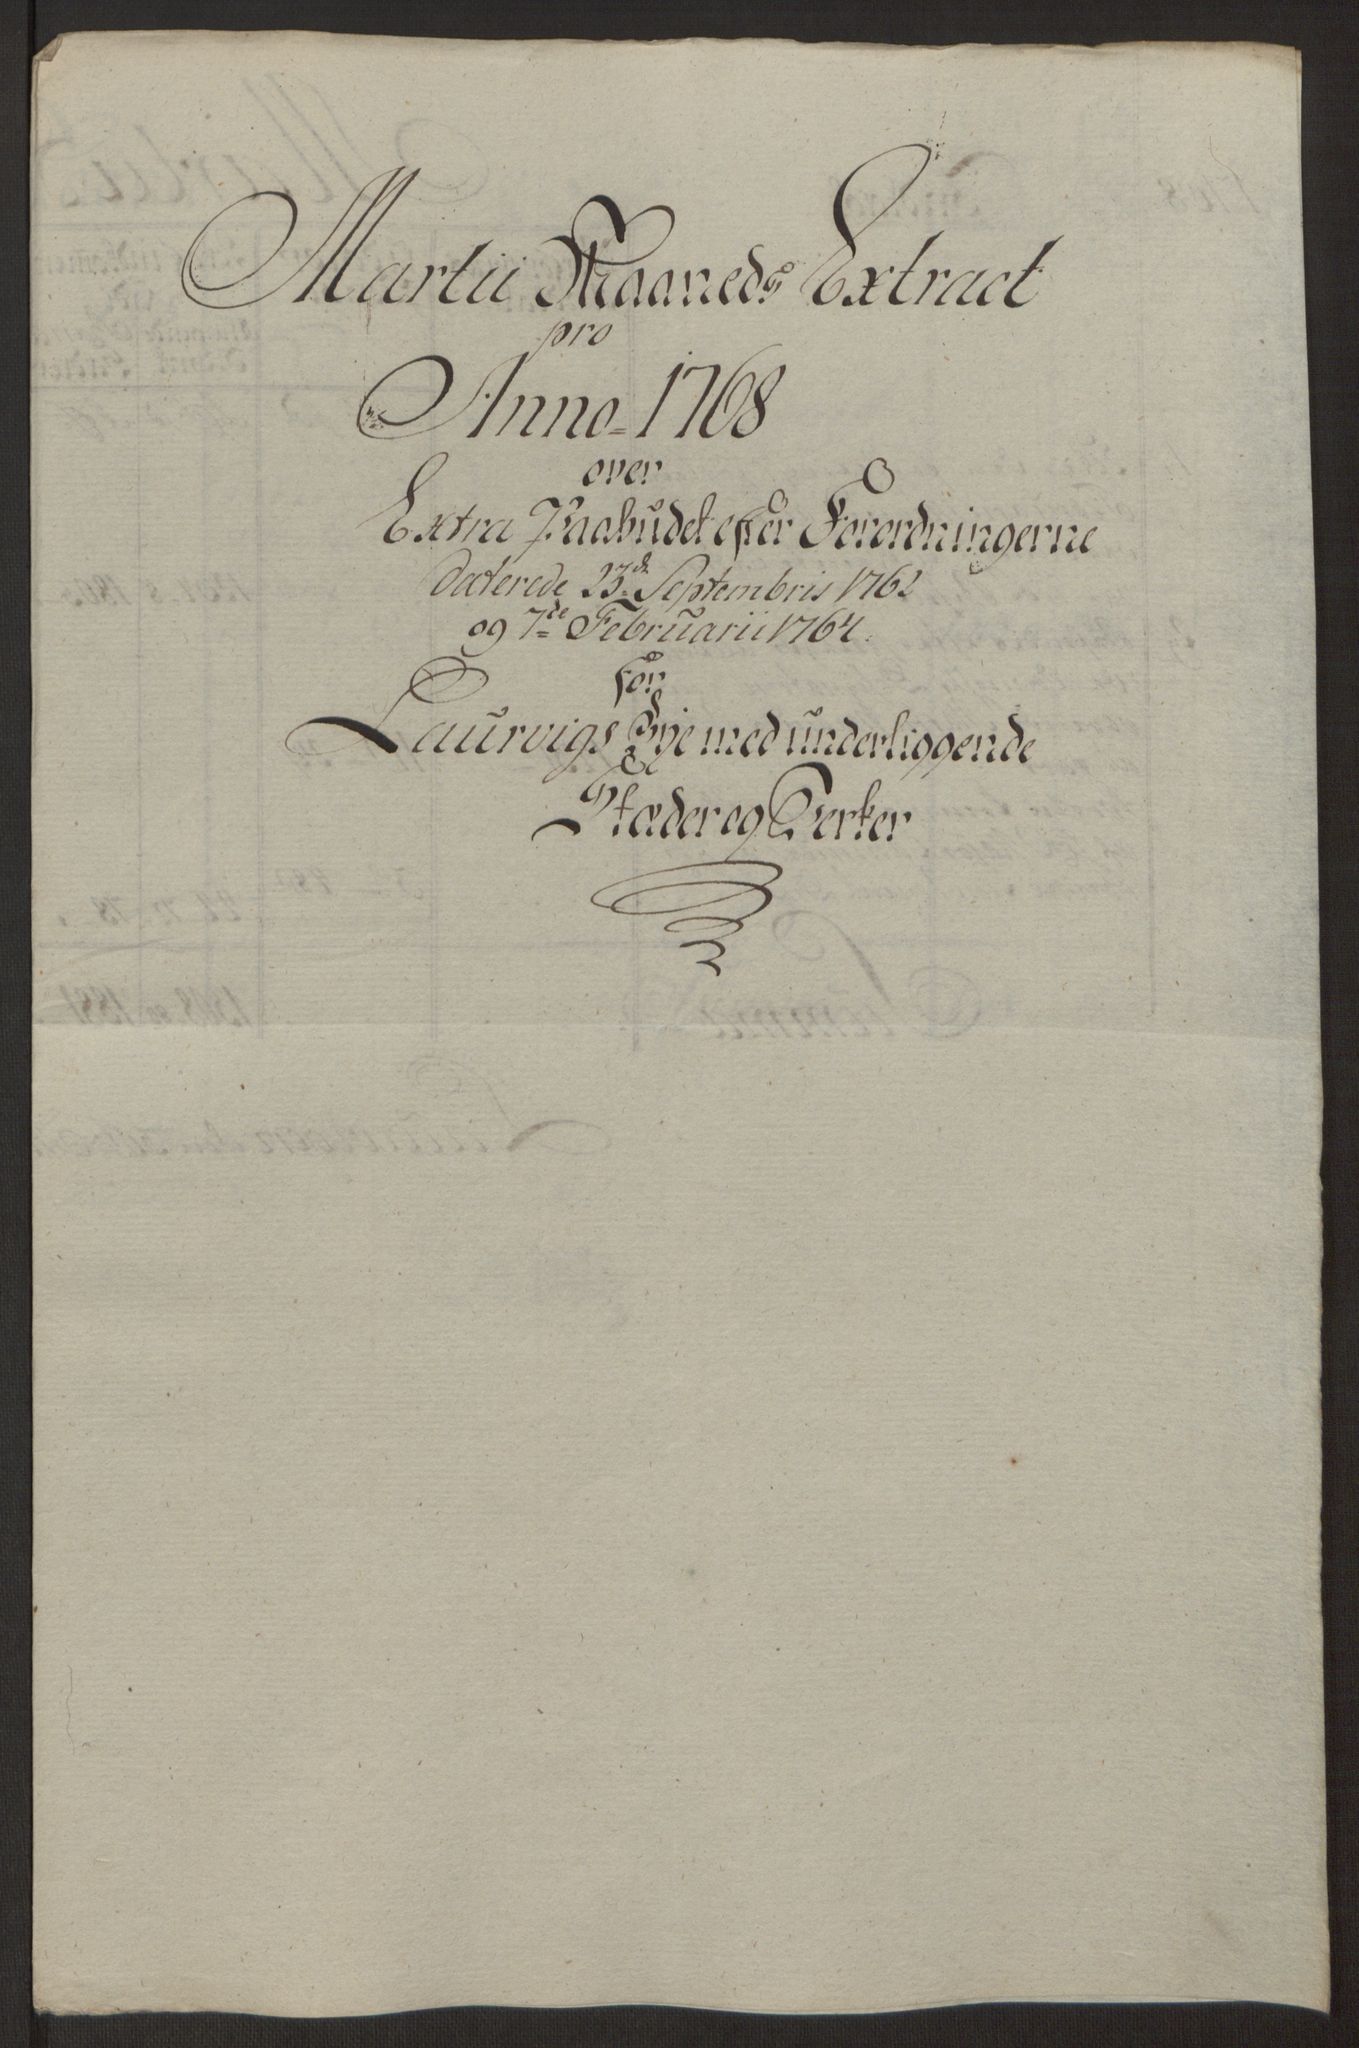 Martii Maaneds Extract
pro
Anno 1768
over
Extra Paabudet efter Forordningerne
daterede 23de Septembris 1762
og 7de Februarii 1764.
for
Laurvigs Bye med underliggende
Stæder og Verker